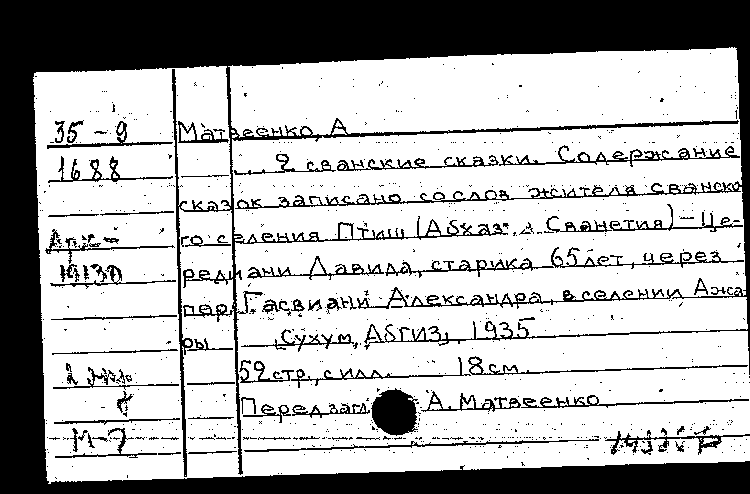 35-9 Матвеенко, А
1688 ... 2 сванские сказки. Содержание
сказок записано со слов жителя сванско-
го селения Птиш (Абхаз. Сванетия) - Це-
19130 редиани Давида, старика 65 лет, через
пер. Гасвиани Александра, в селении Ажа-
ры [Сухум, АБГИЗ], 1935
2 экз. 52 стр., с илл. 18 см.
Перед загл. А. Матвеенко
М-7